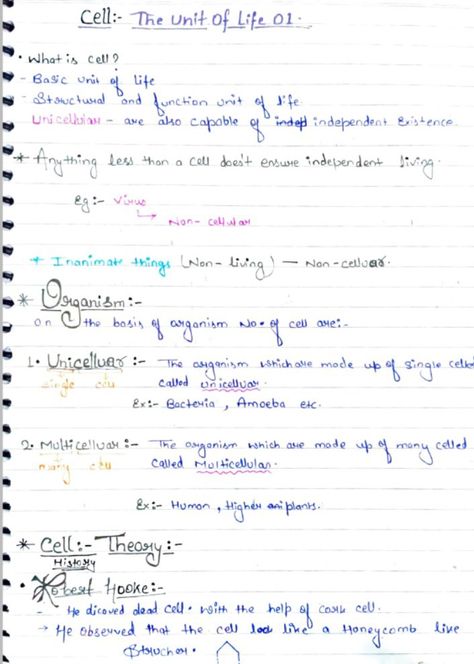 Cell:- The Unit Of Life 01.
• What is cell?
- Basic unit of life
- Structural and function unit of life
Unicellular - are also capable of indep independent Existence.
* Anything less than a cell does't ensure independent living.
Eg:- Virus
↳ Non-cellular
* Inanimate things (Non-living) — Non-celluar.
* Organism:-
on the basis of organism No. of cell are:-
1. Unicelluar:- The organism which are made up of single celled
single cell
called unicelluar.
Ex:- Bacteria, Amoeba etc.
2. Multicelluar:- The organism which are made up of many celled
many cell
called Multicellular.
Ex:- Human, Higher plants.
* Cell:- Theory:-
History
• Robert Hooke:-
- He dicoved dead cell. With the help of cork cell.
→ He observed that the cell look like a Honeycomb like
Strucher.